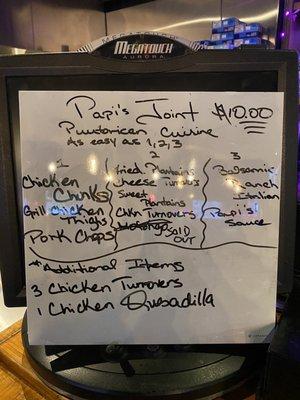 MEGATOUCH
AURORA
Papi's Joint $10.00
Puertorican Cuisine
As easy as 1,2,3
1
Chicken
Chunks
Grill Chicken
Thighs
Pork Chops
2
Fried Plantains
Cheese Turnovers
Sweet
Plantains
Chkn Turnovers
Mofongo SOLD
OUT
3
Balsamic
Ranch
Italian
Papi's
Sauce
* Additional Items
3 Chicken Turnovers
1 Chicken Quesadilla